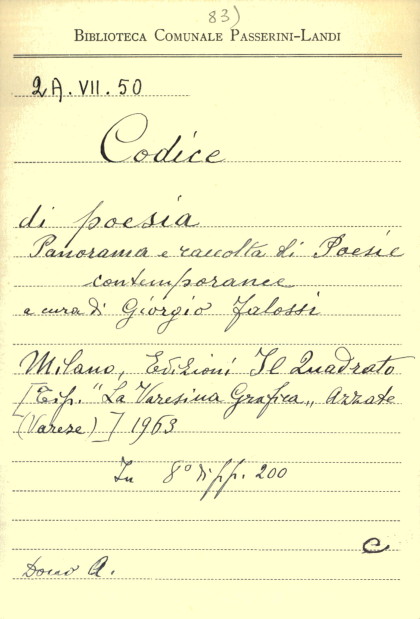 83)
BIBLIOTECA COMUNALE PASSERINI-LANDI
2A.VII.50
Codice
di poesia
Panorama e raccolta di Poesie
contemporanee
a cura di Giorgio Falossi
Milano, Edizioni Il Quadrato
[Tip. "La Varesina Grafica„ Azzate
(Varese)] 1963
In 8° di pp. 200
C
Dono A.